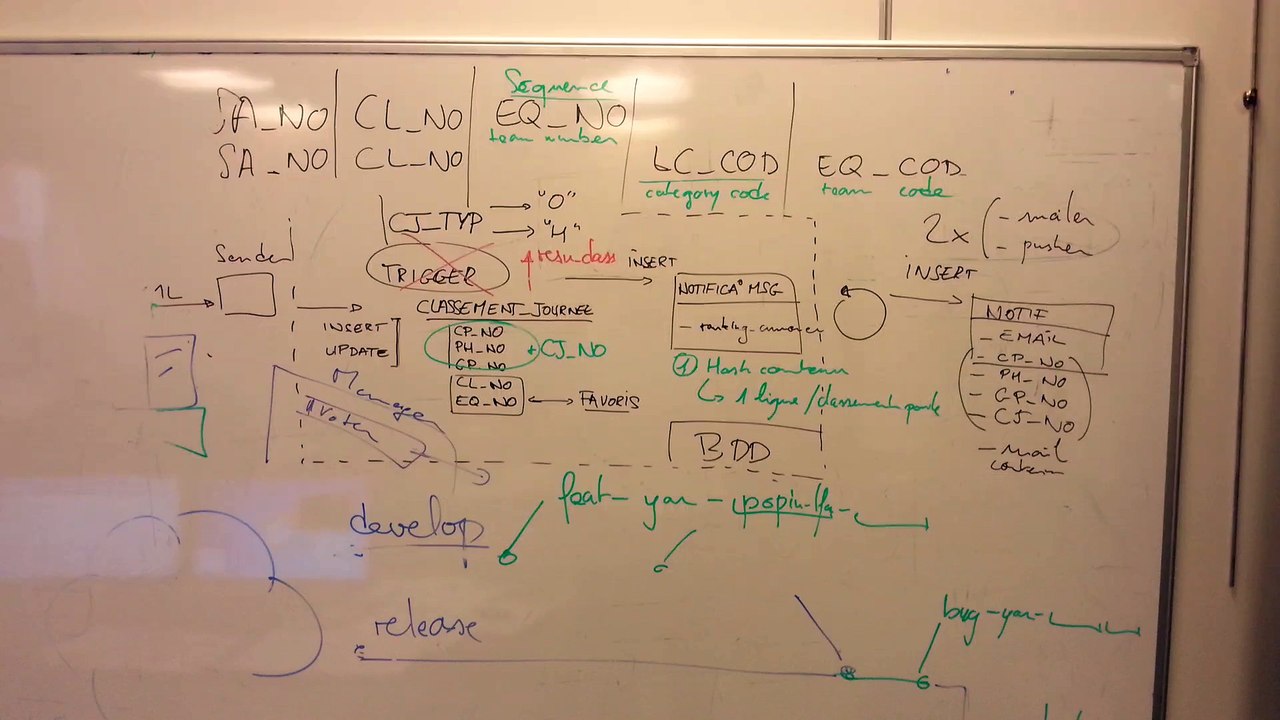 Sequence
SA_NO CL_NO EQ_NO
team number
SA_NO CL_NO LC_COD EQ_COD
category code team code
CJ_TYP "O"
"H"
2x - mailer
- pusher
Sender
TRIGGER
INSERT
INSERT
1L
CLASSEMENT_JOURNEE
NOTIFICA° MSG
NOTIF
INSERT
UPDATE
CP_NO
PH_NO
GP_NO
+ CJ_NO
CL_NO
EQ_NO
FAVORIS
- EMAIL
- CP_NO
- PH_NO
- GP_NO
- CJ_NO
- mail
contenu
① Hash contenu
1 ligne/classement
Manager
BDD
develop
feat-yan-popin-
release
bug-yan-